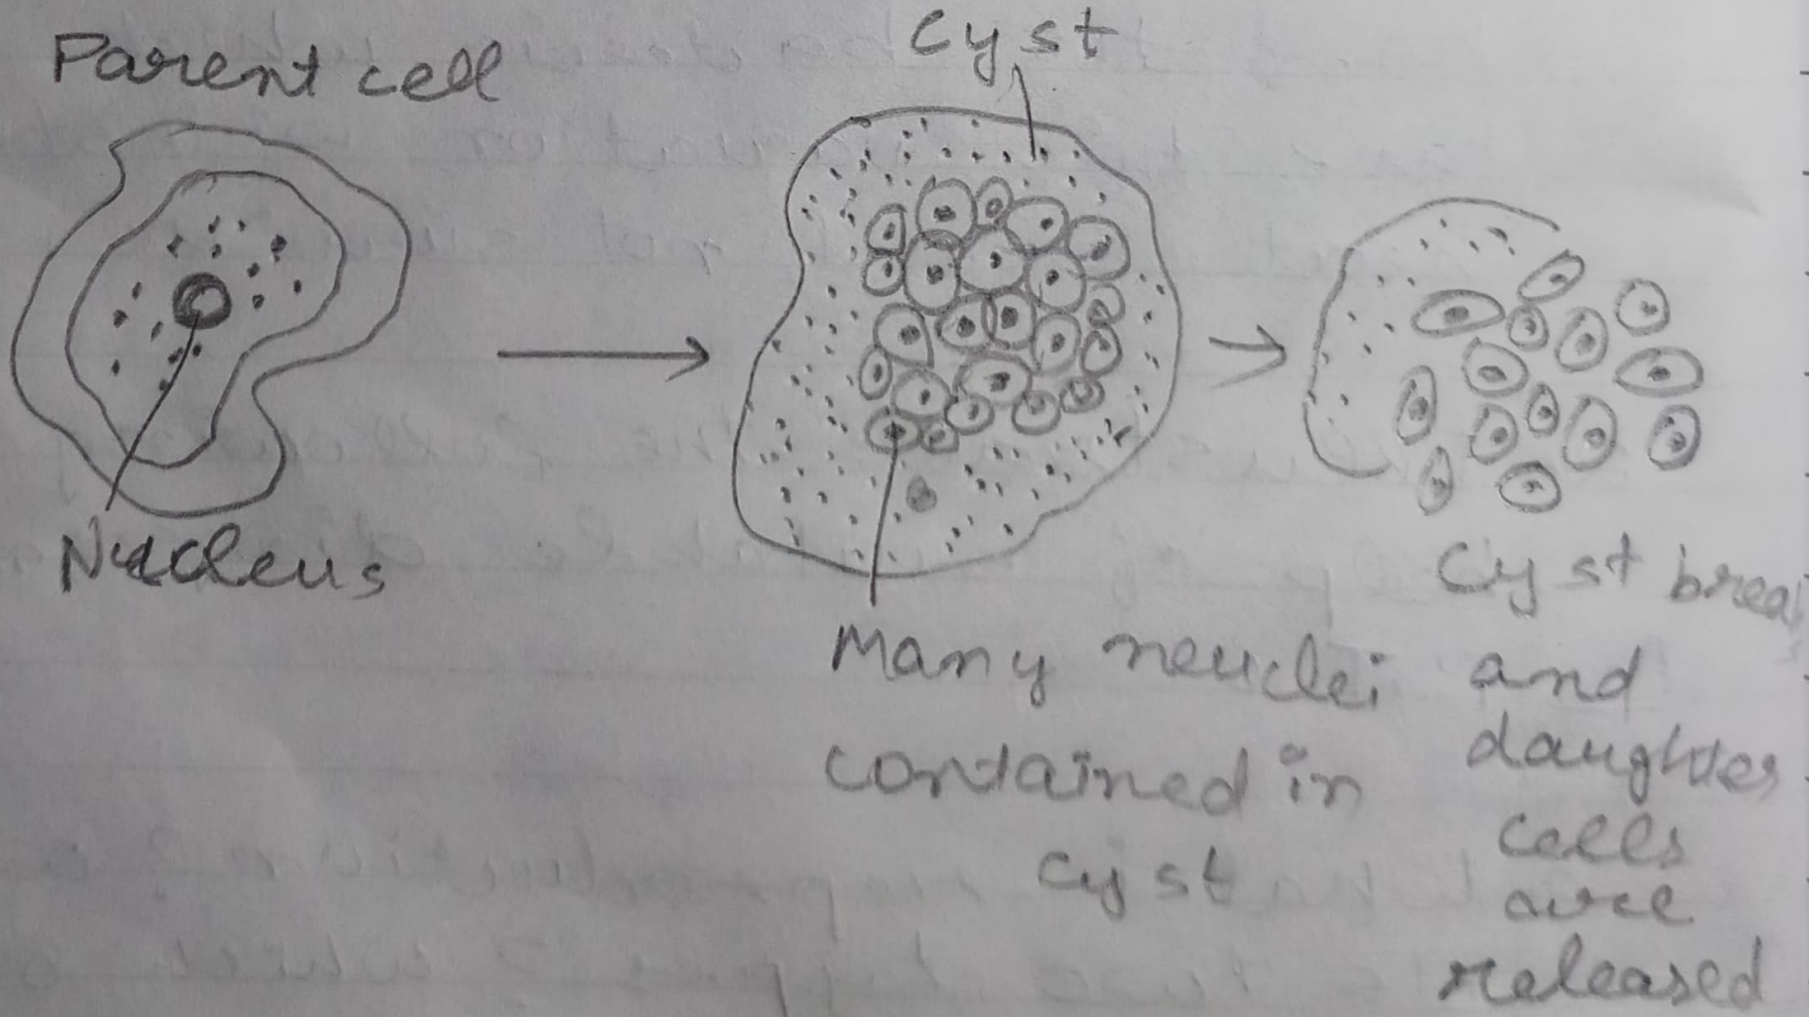 Parent cell
Cyst
Nucleus
Many neuclei
contained in
cyst
Cyst brea
and
daughter
cells
are
released